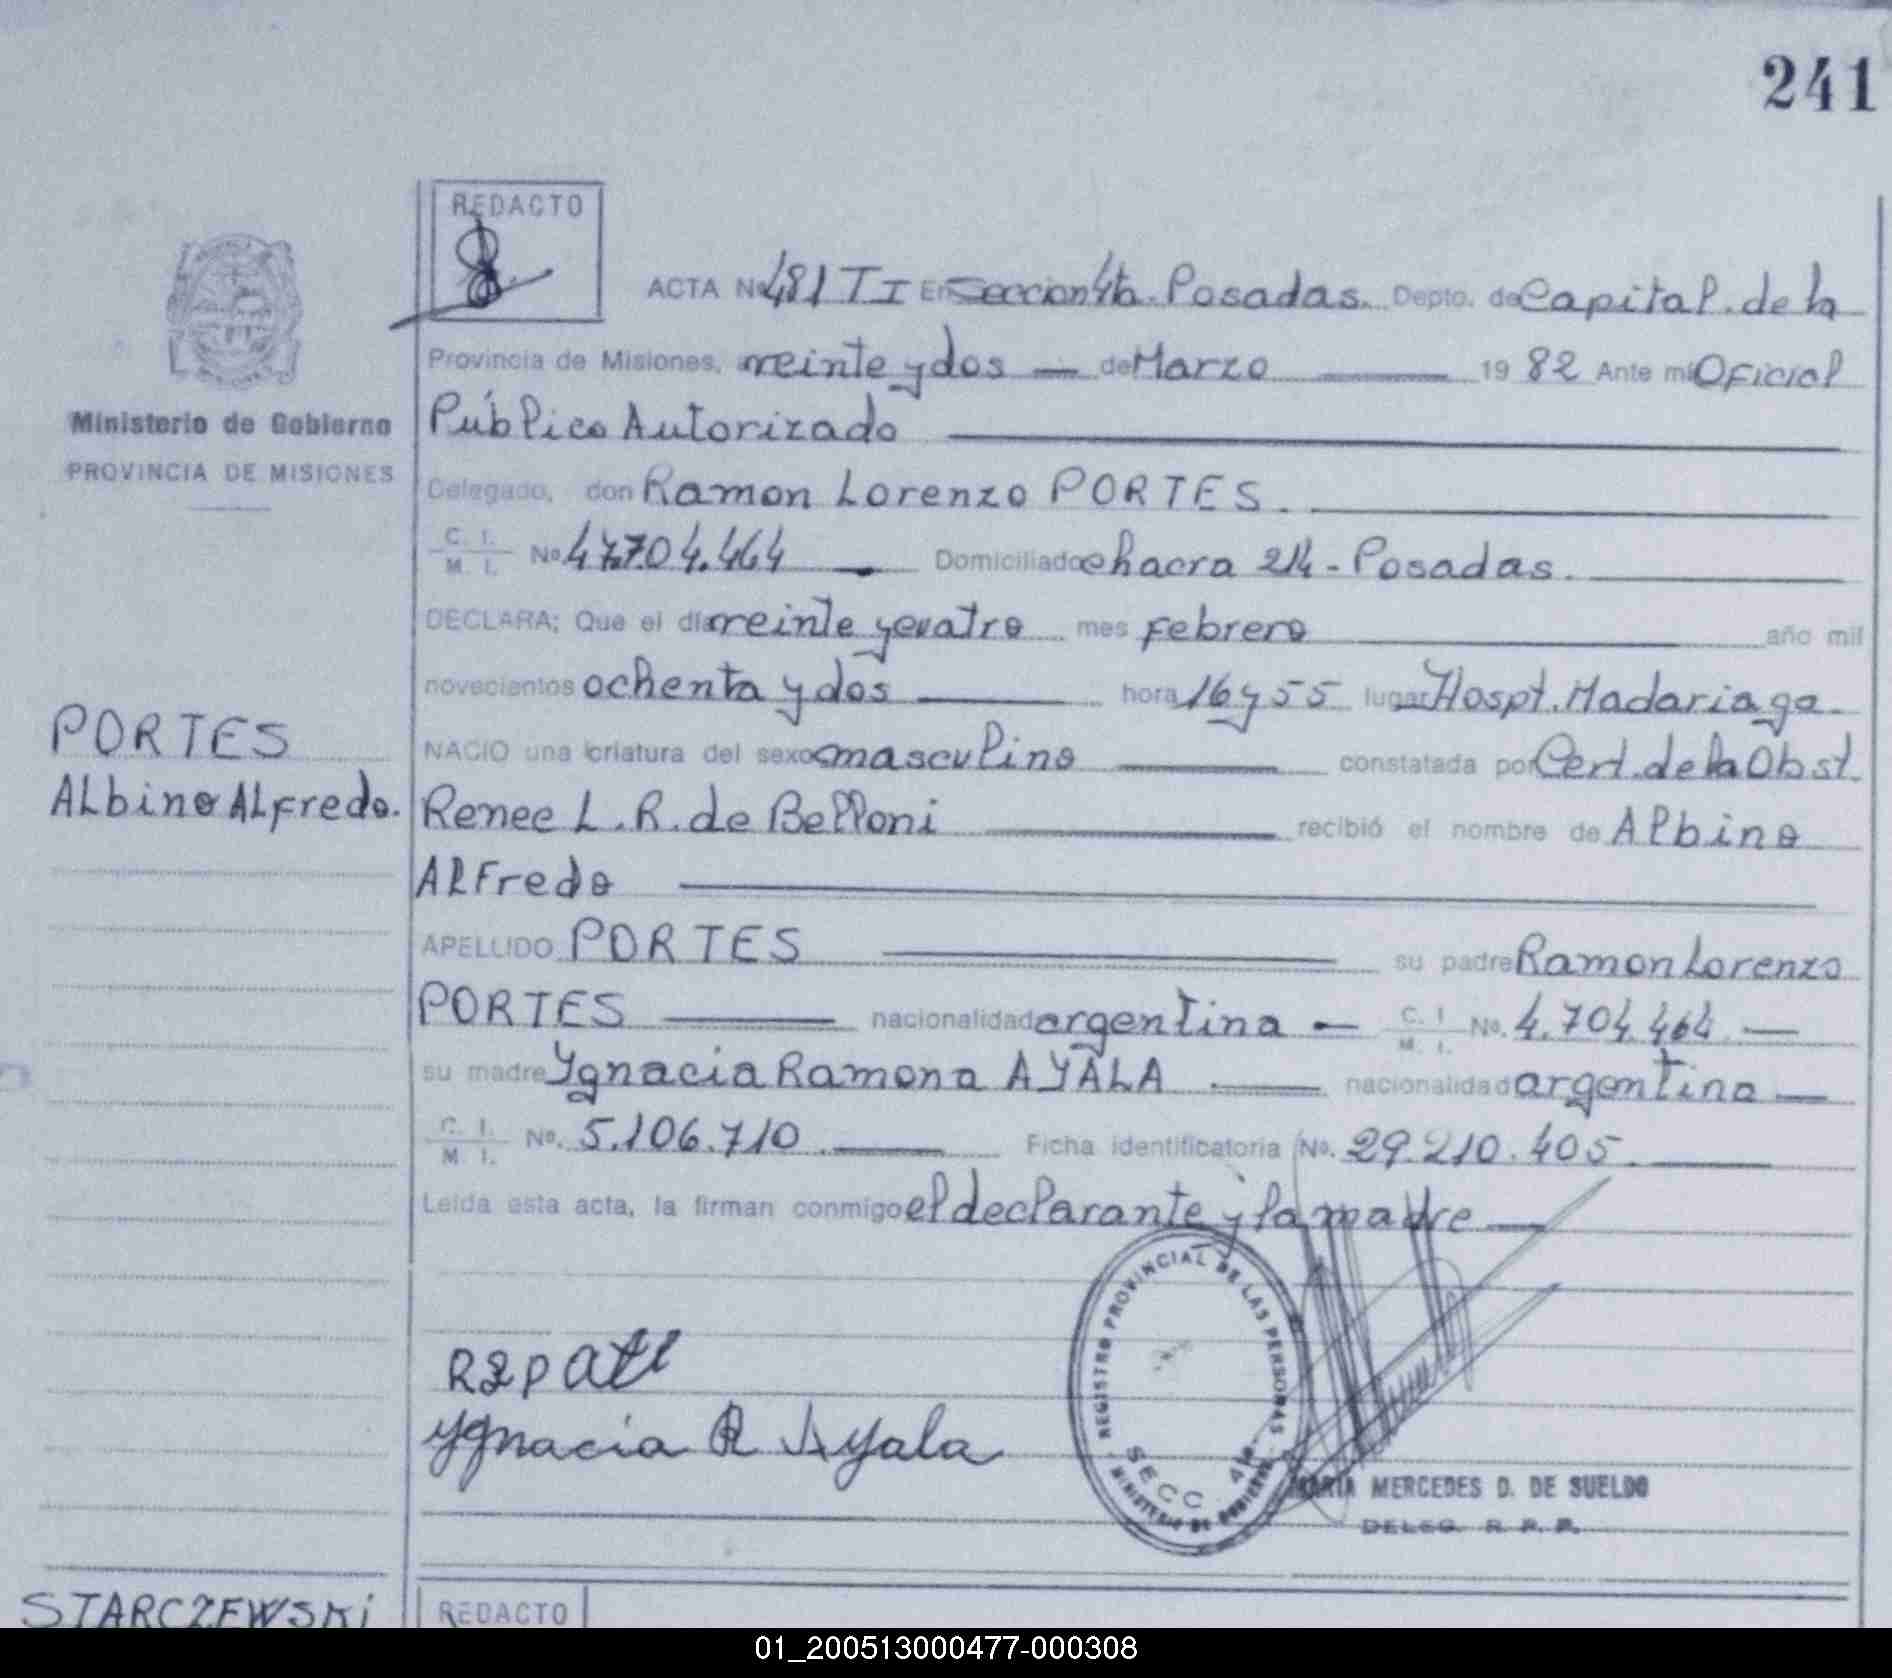 241
REDACTO
ACTA No 481 TI En Seccion 4ta. Posadas. Depto. de Capital. de la
Provincia de Misiones, a veinte y dos — de Marzo — 19 82 Ante mi Oficial
Ministerio de Gobierno
PROVINCIA DE MISIONES
Público Autorizado
Delegado, don Ramon Lorenzo PORTES.
C. I. M. I. No. 4.704.464 — Domiciliado chacra 214 - Posadas.
DECLARA; Que el día veinte y cuatro mes Febrero año mil
novecientos ochenta y dos — hora 16 y 55 lugar Hospt. Madariaga.
PORTES
Albino Alfredo.
NACIO una criatura del sexo masculino — constatada por Cert. de la Obst.
Renee L. R. de Belloni — recibió el nombre de Albino
Alfredo —
APELLIDO PORTES — su padre Ramon Lorenzo
PORTES — nacionalidad argentina — C. I. M. I. No. 4.704.464 —
su madre Ygnacia Ramona AYALA — nacionalidad argentina —
C. I. M. I. No. 5.106.710 — Ficha identificatoria No. 29.210.405.
Leída esta acta, la firman conmigo el declarante y la madre —
Ygnacia R Ayala
REGISTRO PROVINCIAL DE LAS PERSONAS
SECC. 4ta.
MINISTERIO DE GOBIERNO
MARIA MERCEDES D. DE SUELDO
DELEG. R. P. P.
STARCZEWSKi
REDACTO
01_200513000477-000308